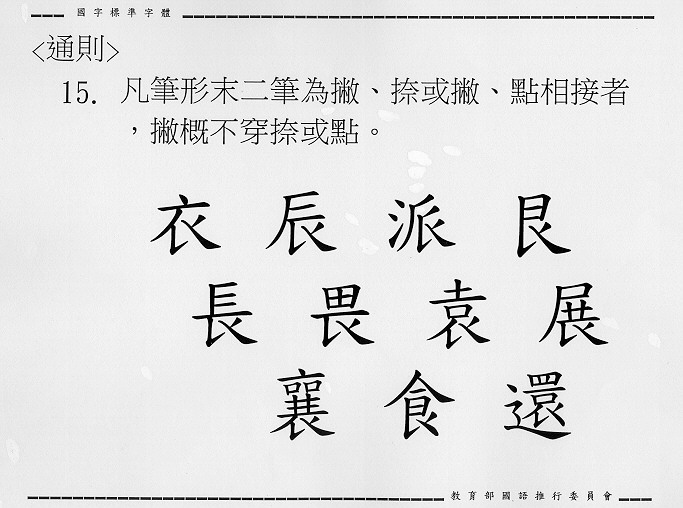 國字標準字體
<通則>
15. 凡筆形末二筆為撇、捺或撇、點相接者
，撇概不穿捺或點。
衣 辰 派 艮
長 畏 袁 展
襄 食 還
教育部國語推行委員會